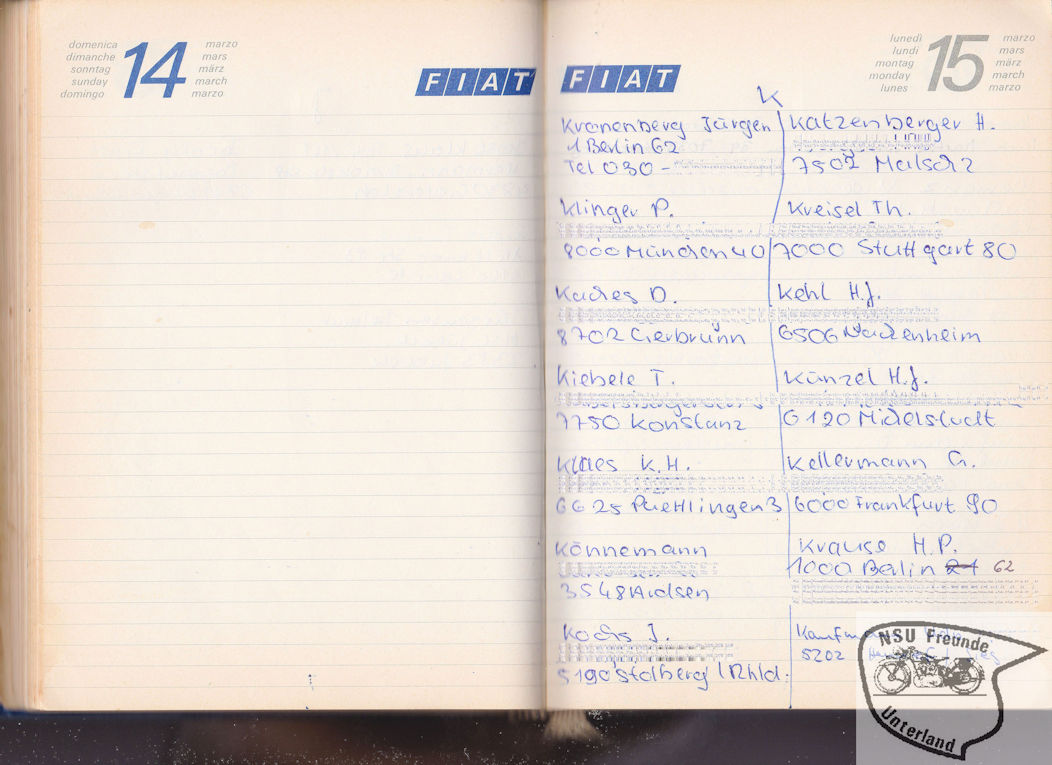 domenica
dimanche
sonntag
sunday
domingo
14
marzo
mars
märz
march
marzo
FIAT
FIAT
lunedì
lundi
montag
monday
lunes
15
marzo
mars
märz
march
marzo
K
Kronenberg Jürgen
1 Berlin 62
Tel 030 -
Klinger P.
8000 München 40
Kaches D.
8702
Kiebele T.
7750 Konstanz
Klaes K.H.
6625 Püttlingen 3
Könnemann
3548 Arolsen
Kochs J.
5190 Stolberg (Rhld.
Katzenberger H.
7502 Malsch 2
Kreisel Th.
7000 Stuttgart 80
Kehl H.J.
6506 Nackenheim
Künzel H.J.
6120 Michelstadt
Kellermann G.
6000 Frankfurt 90
Krause H.P.
1000 Berlin 21 62
5202
NSU Freunde
Unterland